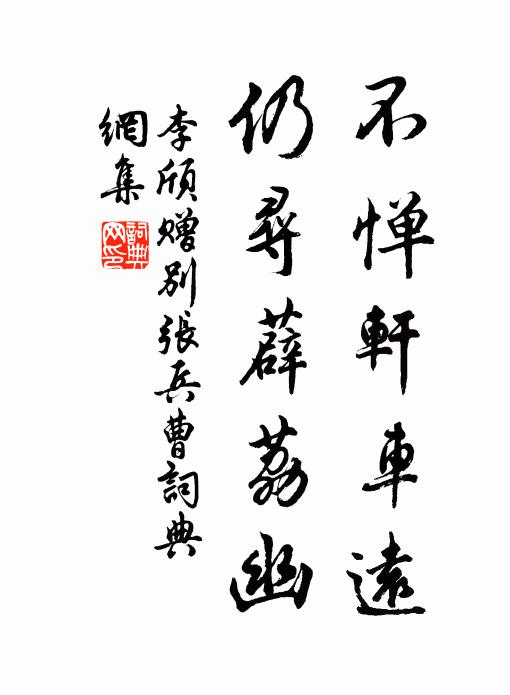 不憚軒車遠
仍尋薜荔幽
李頎贈別張兵曹詞典
網集
詞典
网印